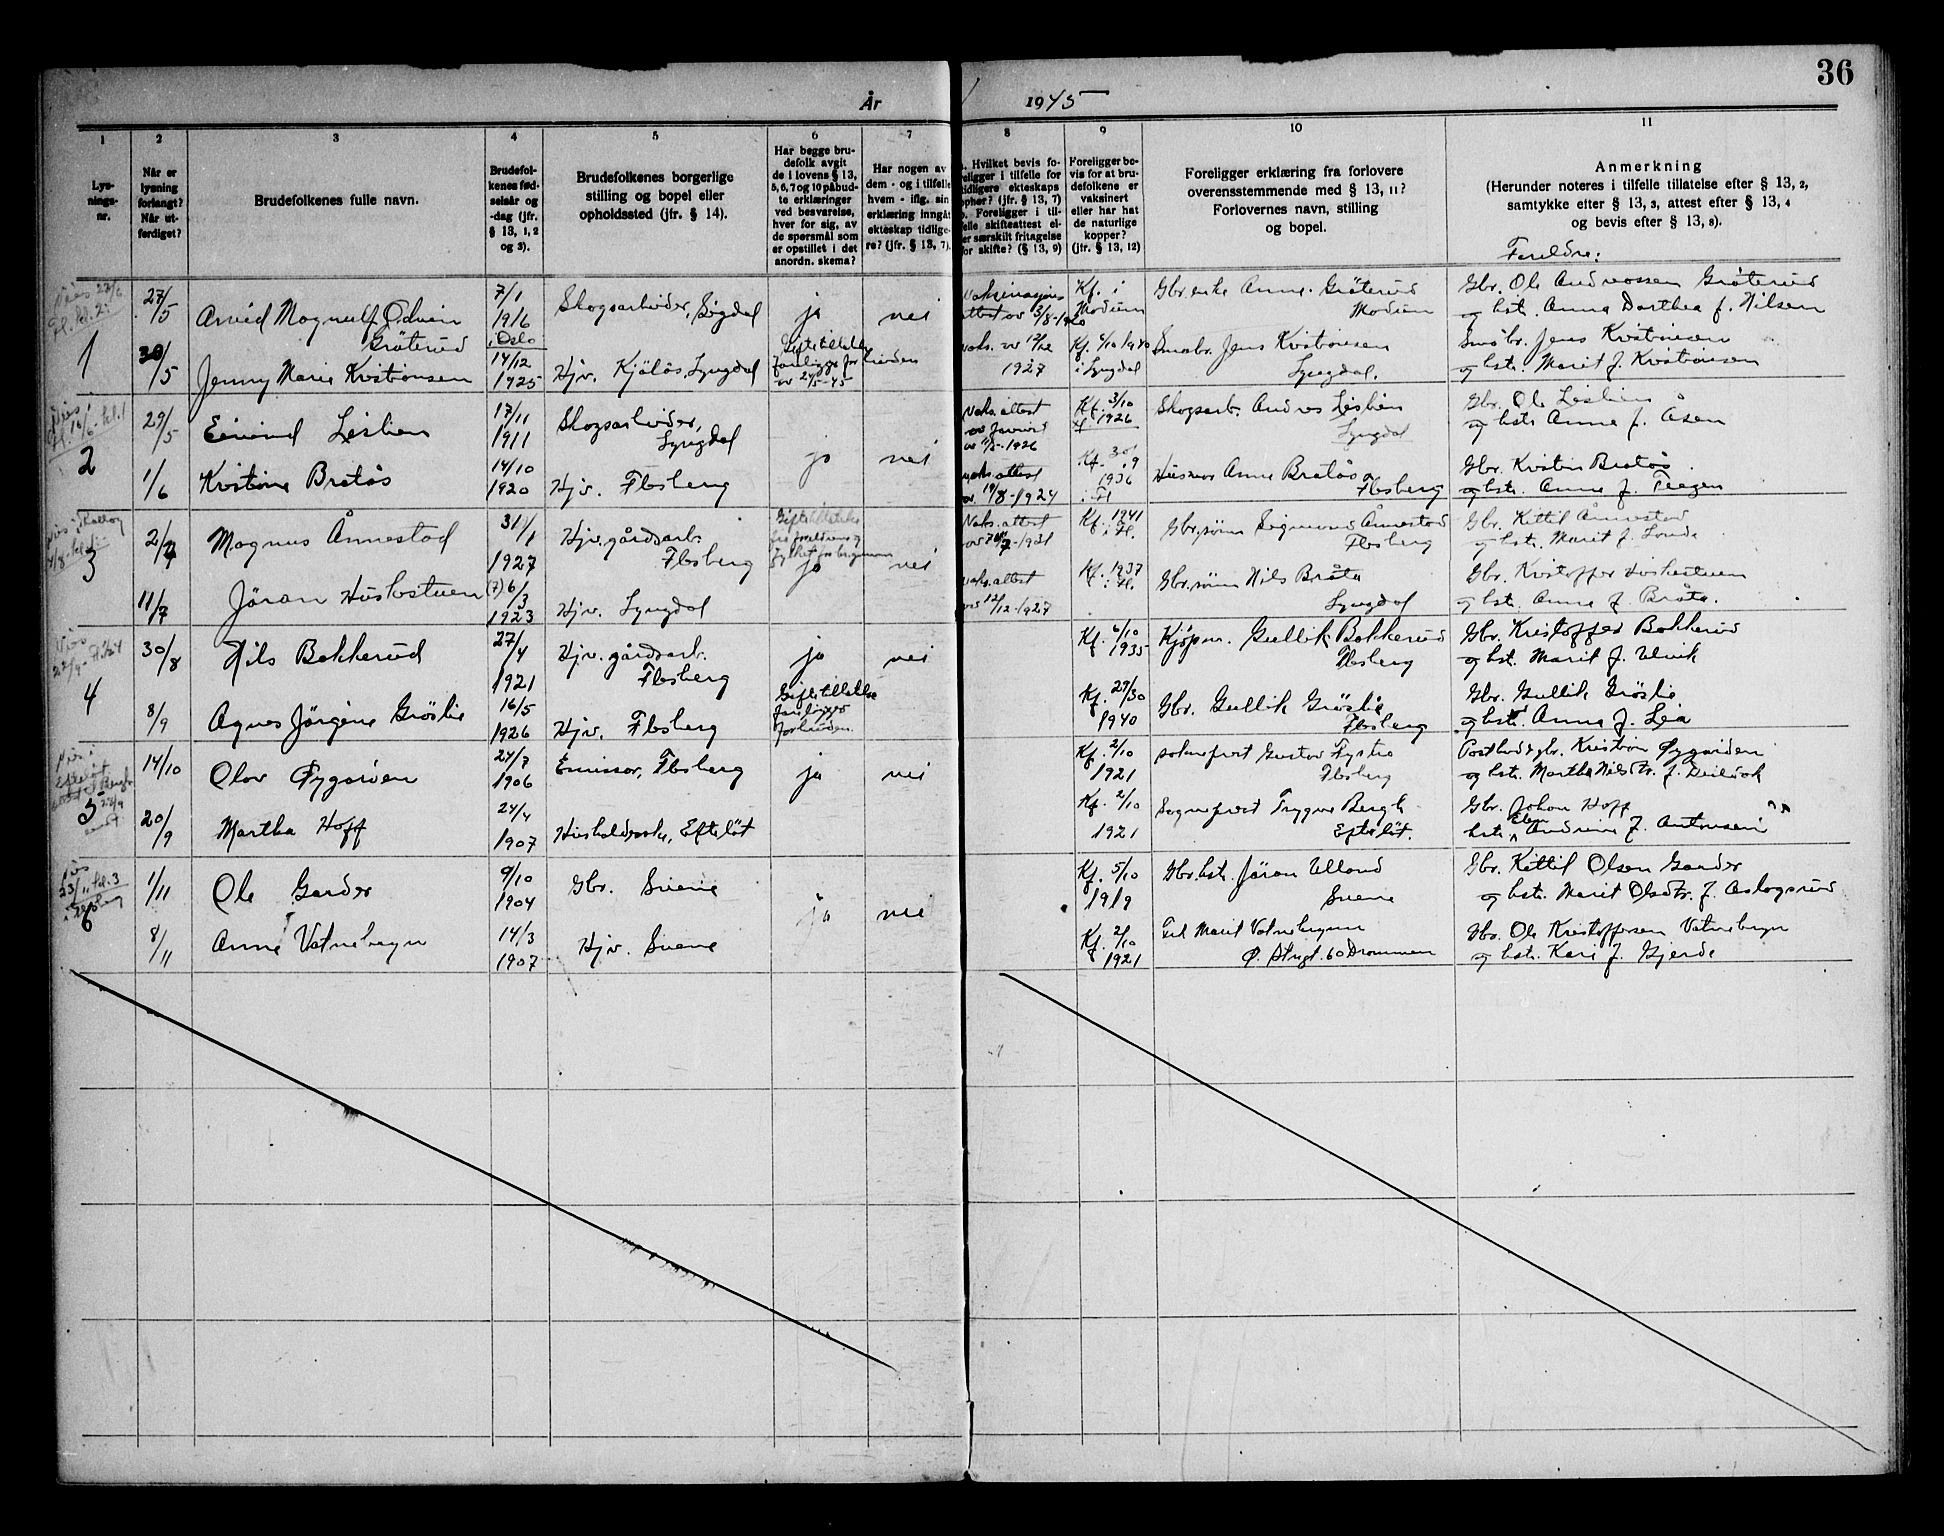 36
År 1945
1
2
3
4
5
6
7
8
9
10
11
Lys-
nings-
nr.
Når er
lysning
forlangt?
Når ut-
ferdiget?
Brudefolkenes fulle navn.
Brudefol-
kenes fød-
selsår og
-dag (jfr.
§ 13, 1, 2
og 3).
Brudefolkenes borgerlige
stilling og bopel eller
opholdssted (jfr. § 14).
Har begge bru-
defolk avgit
de i lovens § 13,
5, 6, 7 og 10 påbud-
te erklæringer
ved besvarelse,
hver for sig, av
de spørsmål som
er opstillet i det
anordn. skema?
Har nogen av
dem - og i tilfelle
hvem - iflg. sin
erklæring inngåt
ekteskap tidlige-
re? (jfr. § 13, 7).
Hvilket bevis fo-
religger i tilfelle for
tidligere ekteskaps
ophør? (jfr. § 13, 7)
Foreligger i til-
felle skifteattest el-
ler særskilt fritagelse
for skifte? (§ 13, 9)
Foreligger be-
vis for at bru-
defolkene er
vaksinert
eller har hat
de naturlige
kopper?
(jfr. § 13, 12)
Foreligger erklæring fra forlovere
overensstemmende med § 13, 11?
Forlovernes navn, stilling
og bopel.
Anmerkning
(Herunder noteres i tilfelle tillatelse efter § 13, 2,
samtykke efter § 13, 3, attest efter § 13, 4
og bevis efter § 13, 8).
Foreldre:
1
27/5
Arvid Magnulf Odvin
Grøterud
7/1
1916
i Oslo
Skogsarbeider, Sigdal
ja
nei
Vaksinasjons
attest av 3/8-1920
Kf. i
Modum
Gbr.enke Anne Grøterud
Modum
Gbr. Ole Andreassen Grøterud
og hstr. Anna Dorthea f. Nilsen
30/5
Jenny Marie Kristiansen
14/12
1925
Hjv. Kjølås, Lyngdal
Giftetillatelse
foreligger forhinden
av 24/5-45
vaks. av 12/12
1927
Kf. 4/10 1940
i Lyngdal
Småbr. Jens Kristiansen
Lyngdal.
Småbr. Jens Kristiansen
og hstr. Marit f. Kristiansen
2
29/5
Eivind Leslien
17/11
1911
Skogsarbeider,
Lyngdal
ja
nei
Vaks. attest
Kf. 3/10
1926
Skogsarb. Andres Leslien
Lyngdal
Gbr. Ole Leslien
og hstr. Anne f. Åsen
1/6
Kristine Bratås
14/10
1920
Hjv. Flesberg
vaks. attest
av 19/8-1924
Kf. 30/9
1936
i Fl
Husmor Anne Bratås
Flesberg
Gbr. Kristen Bratås
og hstr. Anne f. Teigen
3
2/7
Magnus Ånnestad
31/1
1927
Hjv. gårdsarb.
Flesberg
Giftetillatelse
fra foreldrene og
fylket for brudgommen
ja
nei
Vaks. attest
Kf. 1941
i Fl.
Gbr.sønn Sigmund Ånnestad
Flesberg
Gbr. Kittil Ånnestad
og hstr. Marit f. Lande
11/7
Jøran Huslestuen
(7) 6/3
1923
Hjv. Lyngdal
vaks. attest
av 12/12-1927
Kf. 1937
i Fl.
Gbr.sønn Nils Bråta
Lyngdal
Gbr. Kristoffer Huslestuen
og hstr. Anne f. Bråta.
4
30/8
Nils Bakkerud
27/4
1921
Hjv. gårdsarb.
Flesberg
ja
nei
Kf. 6/10
1935
Kjøpm. Gullik Bakkerud
Flesberg
Gbr. Kristoffer Bakkerud
og hstr. Marit f. Ulvik
8/9
Agnes Jørgine Grøslie
16/5
1926
Hjv. Flesberg
Giftetillatelse
foreligger
forhinden.
Kf. 29/30
1940
Gbr. Gullik Grøslie
Flesberg
Gbr. Gullik Grøslie
og hstr. Anna f. Lia
5
14/10
Olav Øygarden
24/7
1906
Emissær, Flesberg
ja
nei
Kf. 2/10
1921
sokneprest Gustav Fystro
Flesberg
Postbud & gbr. Kristian Øygarden
og hstr. Martha Nilsdtr. f. Deildok
20/9
Martha Hoff
24/4
1907
Husholderske, Efteløt
Kf. 2/10
1921
Sogneprest Trygve Bergh
Efteløt.
Gbr. Johan Hoff
hstr. Elen Andrine f. Antonsen
6
1/11
Ole Garder
9/10
1904
Gbr. Svene
ja
nei
Kf. 5/10
1919
Gbr.hstr. Jøran Ulland
Svene
Gbr. Kittil Olsen Garder
og hstr. Marit Olsdtr. f. Aslagsrud
8/11
Anne Vatnebryn
14/3
1907
Hjv. Svene
Kf. 2/10
1921
Frk Marit Vatnebrynn
Ø. Strgt. 60 Drammen
Gbr. Ole Kristoffersen Vatnebryn
og hstr. Kari f. Gjerde